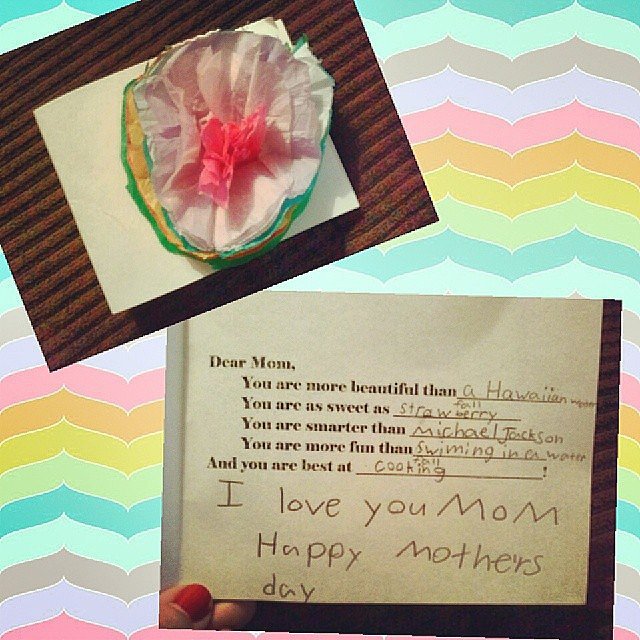 Dear Mom,
You are more beautiful than a Hawaiian water
fall
You are as sweet as strawberry
You are smarter than Michael Jackson
You are more fun than Swiming in a water
fall
And you are best at cooking!
I love you MoM
Happy Mothers
day